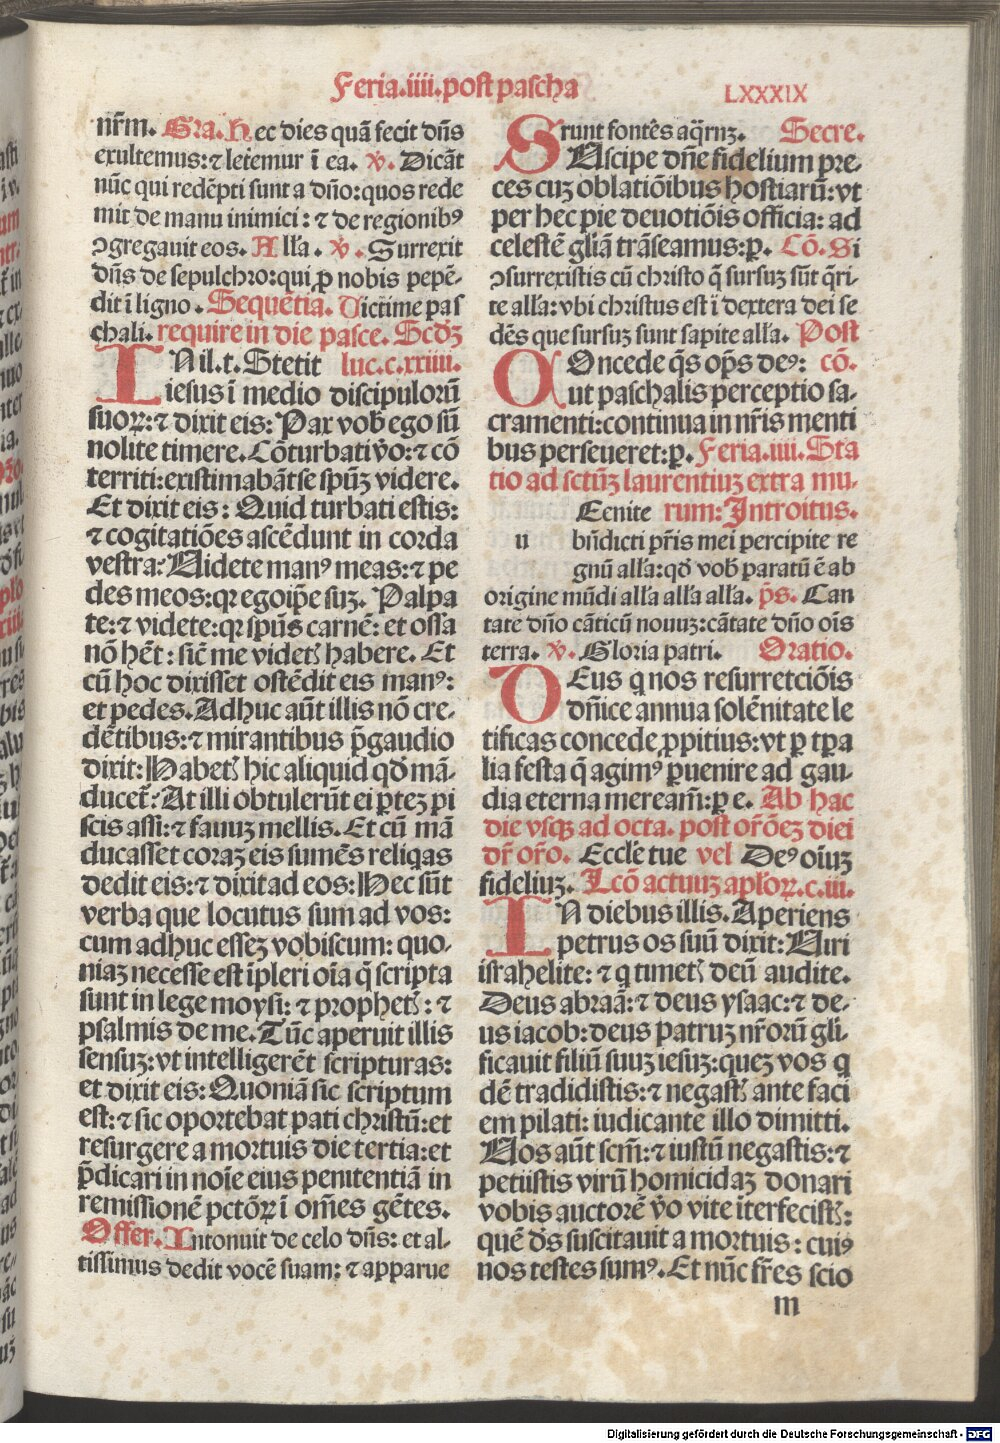 Feria.iiii.post pascha
LXXXIX
nr̄m. Gra. Hec dies quā fecit dn̄s
exultemus:⁊ letemur ī ea. ꝟ. Dicāt
nūc qui redēpti sunt a dn̄o:quos rede
mit de manu inimici: ⁊ de regionibꝰ
ꝯgregauit eos. Alla. ꝟ. Surrexit
dn̄s de sepulchro:qui ꝓ nobis pepē-
dit ī ligno. Sequētia. Victime pas
chali. require in die pasce. Scdꝫ
IN il.t. Stetit luc.c.xxiiii.
iesus ī medio discipulorū
suoꝝ:⁊ dixit eis: Pax vob̄ ego sū
nolite timere. Cōturbati v̄o:⁊ cō
territi:existimabāt se spūꝫ videre.
Et dixit eis: Quid turbati estis:
⁊ cogitatiōes ascēdunt in corda
vestra? Uidete manꝰ meas:⁊ pe
des meos:qꝛ ego ip̄e suꝫ. Palpa
te:⁊ videte:qꝛ spūs carnē: et ossa
nō hēt: sic̄ me videtꝭ habere. Et
cū hoc dixisset ostēdit eis manꝰ:
et pedes. Adhuc aūt illis nō cre-
dētibus:⁊ mirantibus p̄ gaudio
dixit: Habetꝭ hic aliquid qd̄ mā-
ducet̄? At illi obtulerūt ei ꝑteꝫ pi
scis assi:⁊ fauuꝫ mellis. Et cū mā
ducasset coraꝫ eis sumēs reliqas
dedit eis:⁊ dixit ad eos: Hec sūt
verba que locutus sum ad vos:
cum adhuc esseꝫ vobiscum: quo-
niaꝫ necesse est īpleri oīa q̄ scripta
sunt in lege moysi: ⁊ prophetꝭ: ⁊
psalmis de me. Tūc aperuit illis
sensuꝫ:vt intelligerēt scripturas:
et dixit eis: Quoniā sic scriptum
est:⁊ sic oportebat pati christū:et
resurgere a mortuis die tertia:et
p̄dicari in noīe eius penitentiā in
remissionē pctōꝝ ī om̄es gētes.
Offer. Intonuit de celo dn̄s: et al-
tissimus dedit vocē suam: ⁊ apparue
Srunt fontes aq̄rꝫ. Secre.
Ascipe dn̄e fidelium pre-
ces cuꝫ oblatiōibus hostiarū:vt
per hec pie deuotiōis officia: ad
celestē gl̄iā trāseamus:ꝑ. Cō. Si
ꝯsurrexistis cū christo q̄ sursuꝫ sūt q̄ri-
te alla:vbi christus est ī dextera dei se
dēs que sursuꝫ sunt sapite alla. Post
COncede q̄s op̄s deꝰ: cō.
ut paschalis perceptio sa-
cramenti:continua in nr̄is menti
bus perseueret:ꝑ. Feria.iiii. Sta
tio ad sctūꝫ laurentiuꝫ extra mu-
Eenite rum: Introitus.
u bn̄dicti pr̄is mei percipite re
gnū alla:qd̄ vob̄ paratū ē ab
origine mūdi alla alla alla. ps̄. Can
tate dn̄o cāticū nouuꝫ:cātate dn̄o oīs
terra. ꝟ. Gloria patri. Oratio.
DEus q nos resurretciōis
dn̄ice annua solēnitate le
tificas concede ꝓpitius:vt ꝑ tp̄a
lia festa q̄ agimꝰ ꝑuenire ad gau-
dia eterna meream̄:ꝑ e. Ab hac
die vsqꝫ ad octa. post or̄ōeꝫ diei
dr̄ or̄o. Eccle tue vel Deꝰ oīuꝫ
fideliuꝫ. Lcō actuuꝫ aplōꝝ.c.iii.
IN diebus illis. Aperiens
petrus os suū dixit: Uiri
israhelite: ⁊ q timetꝭ deū audite.
Deus abraā: ⁊ deus ysaac:⁊ de-
us iacob: deus patruꝫ nr̄orū gl̄i-
ficauit filiū suuꝫ iesuꝫ:queꝫ vos q
dē tradidistis:⁊ negastꝭ ante faci
em pilati: iudicante illo dimitti.
Uos aūt scm̄:⁊ iustū negastis:⁊
petiistis virū homicidaꝫ donari
vobis auctorē v̄o vite īterfecistꝭ:
quē d̄s suscitauit a mortuis: cuiꝰ
nos testes sumꝰ. Et nūc fr̄es scio
m
Digitalisierung gefördert durch die Deutsche Forschungsgemeinschaft - DFG